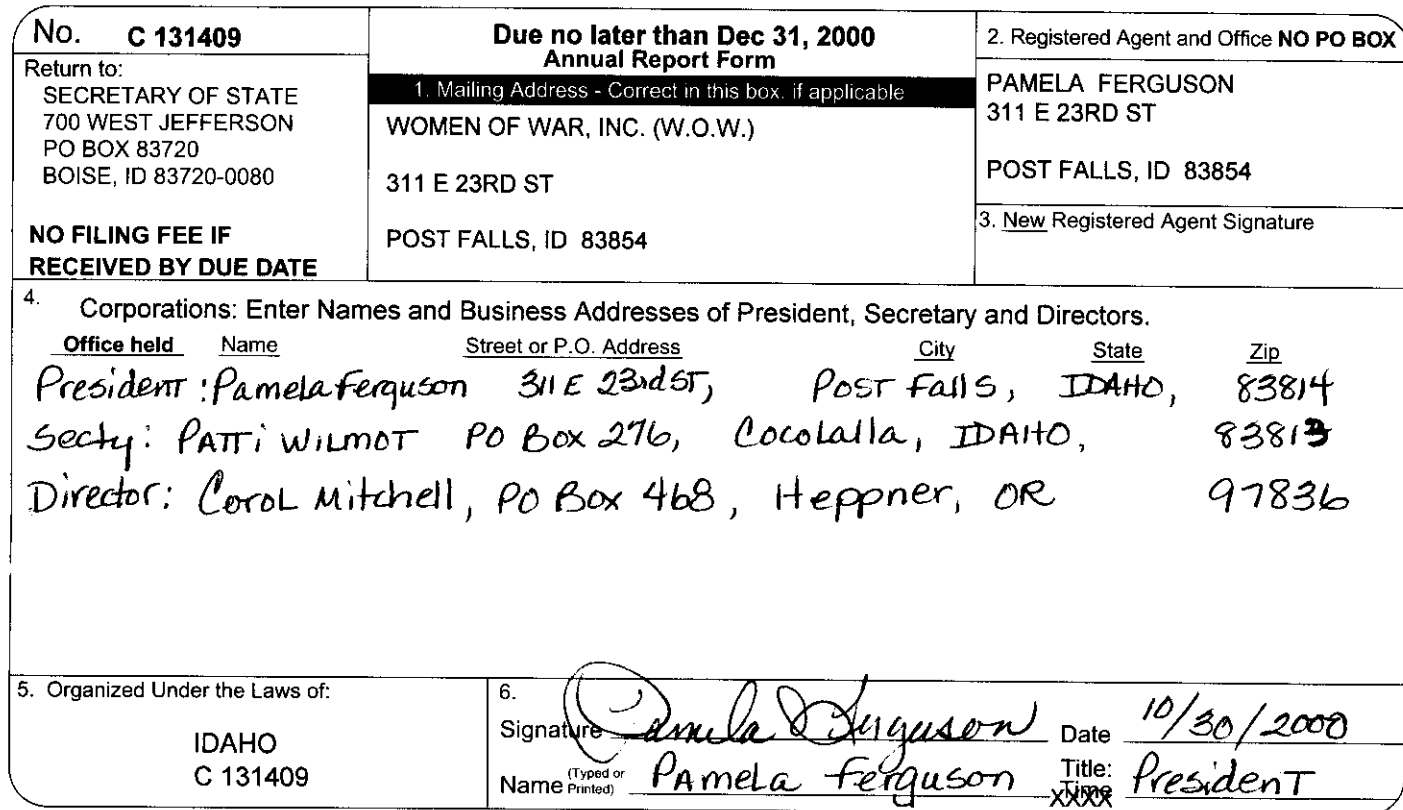 No. C 131409
Return to:
SECRETARY OF STATE
700 WEST JEFFERSON
PO BOX 83720
BOISE, ID 83720-0080
NO FILING FEE IF
RECEIVED BY DUE DATE
Due no later than Dec 31, 2000
Annual Report Form
1. Mailing Address - Correct in this box, if applicable
WOMEN OF WAR, INC. (W.O.W.)
311 E 23RD ST
POST FALLS, ID 83854
2. Registered Agent and Office NO PO BOX
PAMELA FERGUSON
311 E 23RD ST
POST FALLS, ID 83854
3. New Registered Agent Signature
4. Corporations: Enter Names and Business Addresses of President, Secretary and Directors.
Office held Name Street or P.O. Address City State Zip
President: Pamela Ferguson 311 E 23rd ST, Post Falls, IDAHO, 83814
Secty: PATTi WILMOT PO Box 276, Cocolalla, IDAHO, 83813
Director: Corol Mitchell, PO Box 468, Heppner, OR 97836
5. Organized Under the Laws of:
IDAHO
C 131409
6.
Signature Pamela Ferguson Date 10/30/2000
Name (Typed or Printed) PAmeLa Ferguson Title: President